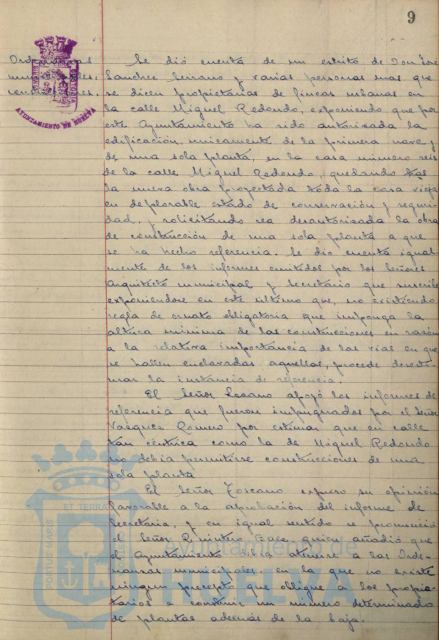 9
Ordenanzas
municipales.
Se dió cuenta de un escrito de Don José
Sanchez Serrano y varias personas mas que
se dicen propietarias de fincas urbanas en
la calle Miguel Redondo, exponiendo que por
este Ayuntamiento ha sido autorizada la
edificación, unicamente de la primera nave y
de una sola planta, en la casa número seis
de la calle Miguel Redondo, quedando tras
la nueva obra proyectada toda la casa vieja
en deplorable estado de conservación y seguri-
dad, y solicitando sea desautorizada la obra
de construcción de una sola planta a que
se ha hecho referencia. Se dió cuenta igual-
mente de los informes emitidos por los Señores
Arquitecto municipal y Secretario que suscribe
exponiendose en este último que, no existiendo
regla de ornato obligatoria que imponga la
altura minima de las construcciones en razón
a la relativa importancia de las vias en que
se hallen enclavadas aquellas, procede desesti-
mar la instancia de referencia.
El Señor Lozano apoyó los informes de
referencia que fueron impugnados por el Señor
Vazquez Romero por estimar que en calle
tan céntrica como la de Miguel Redondo
no debia permitirse construcciones de una
sola planta
El Señor Toscano expuso su opinión
favorable a la aprobación del informe de
Secretaria, y en igual sentido se pronunció
el Señor Quintero Baez quien añadió que
el Ayuntamiento debia atenerse a las Orde-
nanzas municipales en la que no existe
ningun precepto que obligue a los propie-
tarios a construir un número determinado
de plantas además de la baja.
AYUNTAMIENTO DE HUELVA
PORTUS MARIS ET TERRAE
Ayuntamiento de
HUELVA